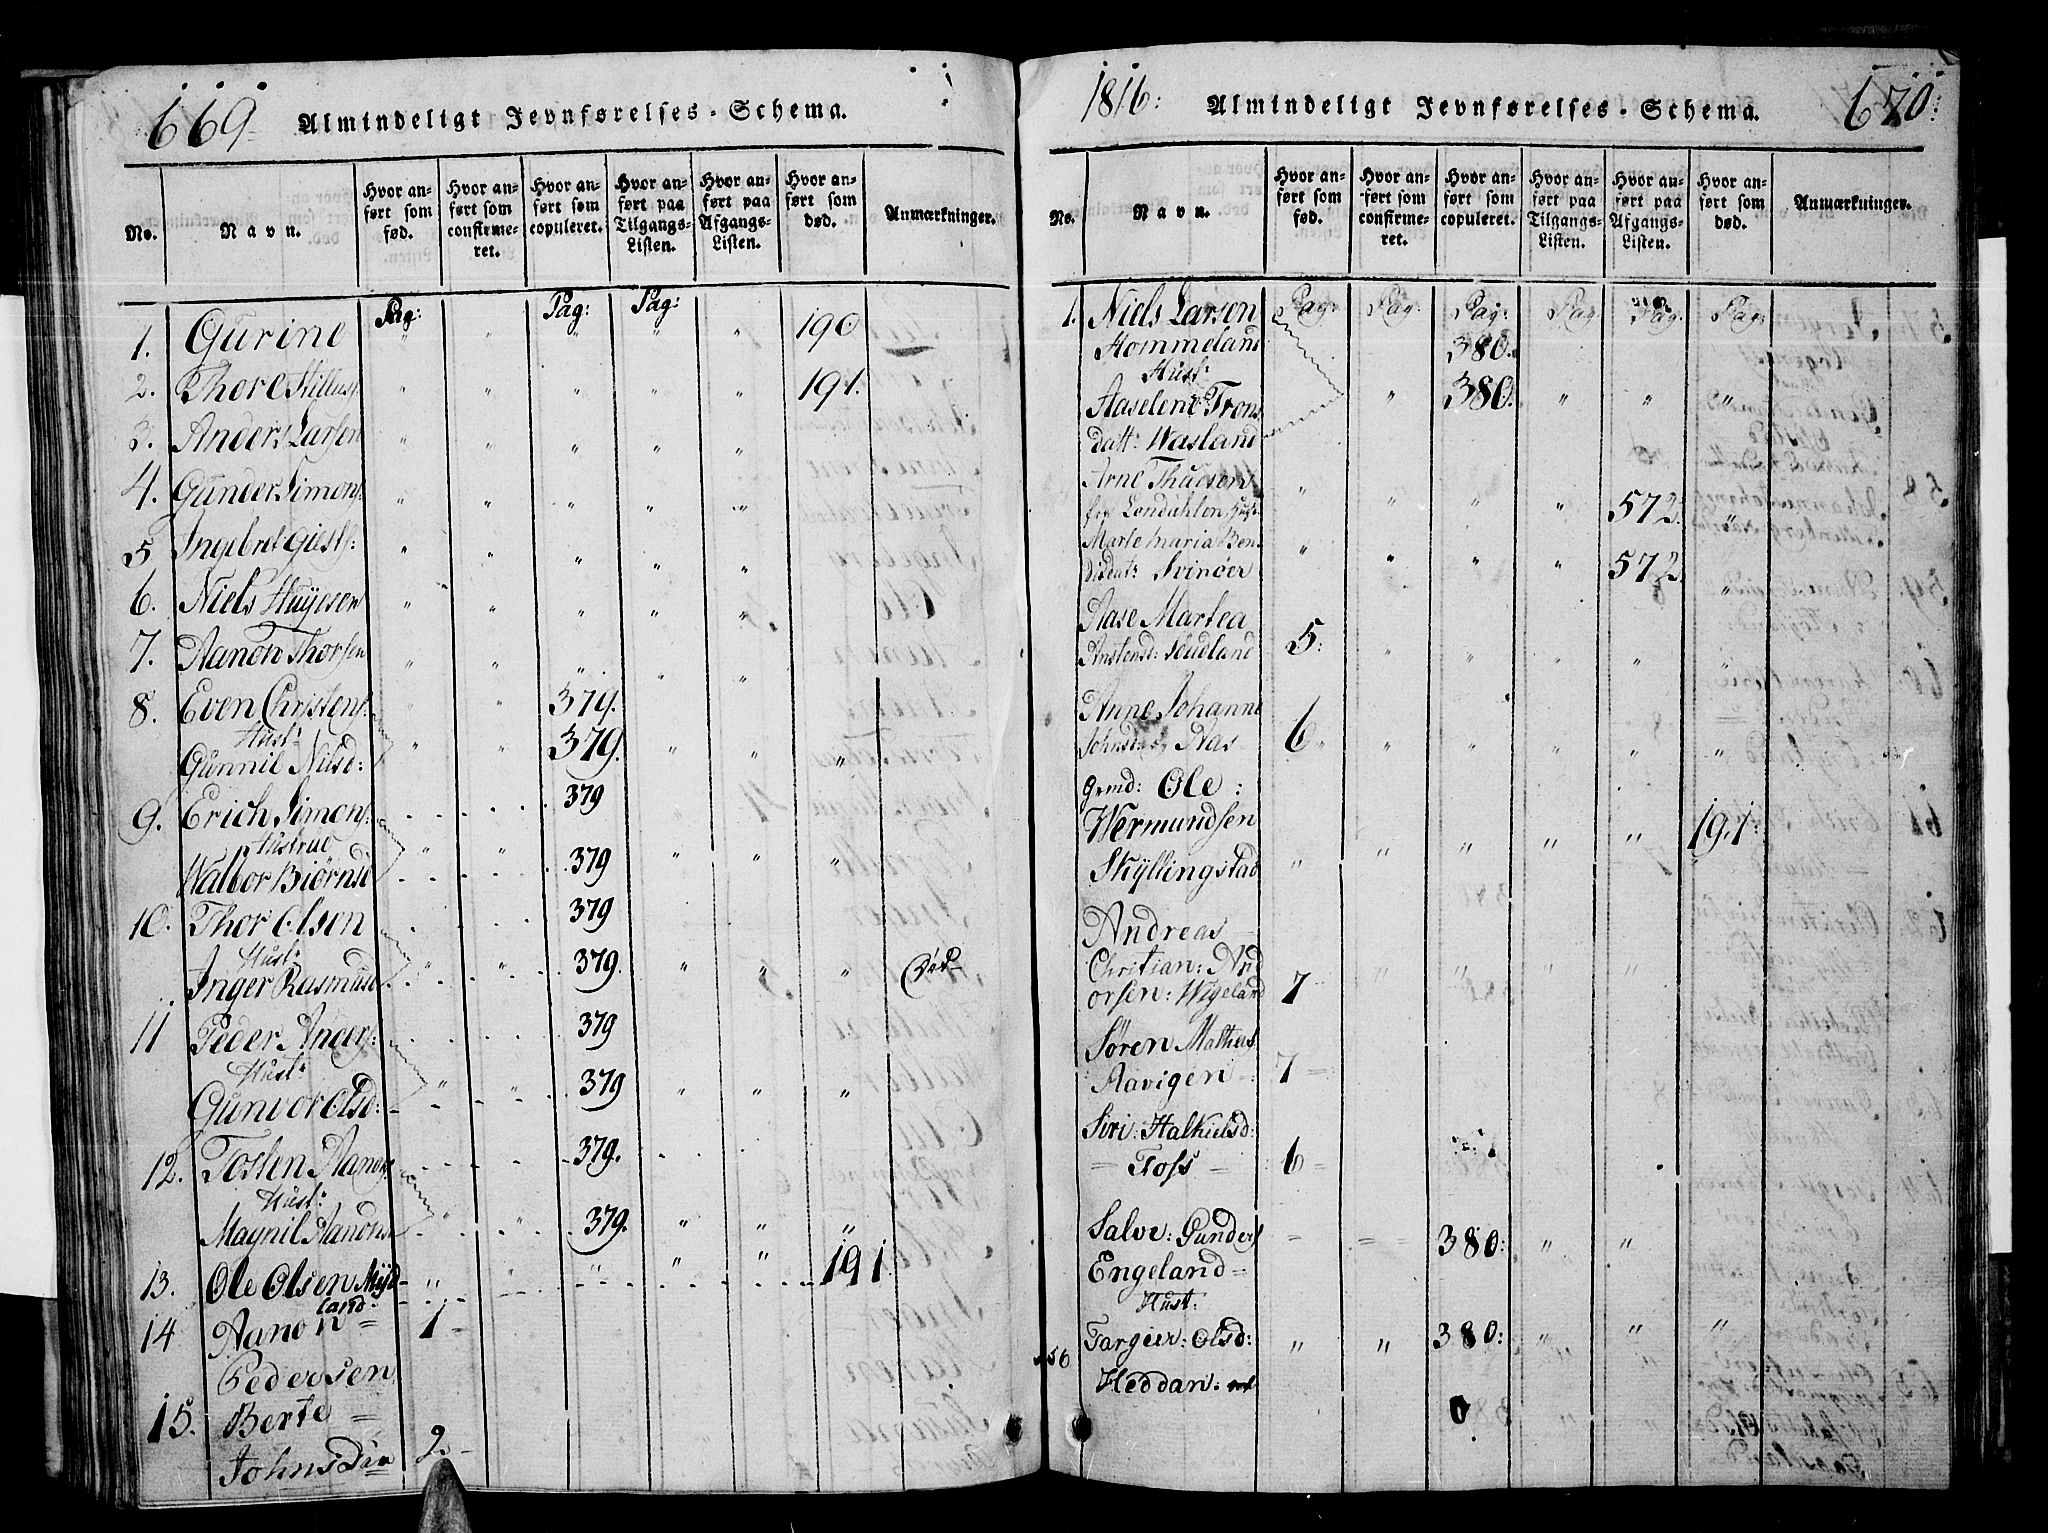 669
Almindeligt Jevnførelses-Schema.
No.
Navn.
Hvor an-
ført som
fød.
Hvor an-
ført som
confirme-
ret.
Hvor an-
ført som
copuleret.
Hvor an-
ført paa
Tilgangs-
Listen.
Hvor an-
ført paa
Afgangs-
Listen.
Hvor an-
ført som
død.
Anmærkninger.
Pag: Pag: Pag:
1. Gurine " " " " " 190
2. Thore " " " " " 191.
3. Anders Larsen " " " " "
4. Gunder Simons: " " " " "
5 Ingebret " " " " "
6. Niels " " " " "
7. Aanon Thorsen " " " " "
8. Even Christens: " " 379.
Hust:
Gunnil Nilsd: " " 379. " " "
9. Erich Simons: 379
Hustrue
Walbor Biørnsd " " 379 " " "
10. Thor Olsen 379
Hust:
Inger Rasmusd " 379. " " "
11 Peder Anders: 379
Hust:
Gunvor Olsd: " " 379 " " "
12. Tosten Aanons: 379.
Hust:
Magnil Aanons " " 379. " " "
13. Ole Olsen Myd- " " " " " 191
land-
14 Aanon = 1-
Pedersen
15. Berte =
Johnsdin 2.-
1816: Almindeligt Jevnførelses-Schema. 670:
No.
Navn.
Hvor an-
ført som
fød.
Hvor an-
ført som
confirme-
ret.
Hvor an-
ført som
copuleret.
Hvor an-
ført paa
Tilgangs-
Listen.
Hvor an-
ført paa
Afgangs-
Listen.
Hvor an-
ført som
død.
Anmærkninger.
1. Niels Larsen Pag: Pag: Pag: Pag Pag. Pag:
Hommeland 380.
Hust:
Aaselene Trons " 380. " " "
datt: Wasland
Arne
" " " " 572. "
Marte Maria Ben-
Svinøer " " " " 572. "
Aase Martea
5: " " " " "
Anne Johanne
Aas- 6 " " " " "
Grmd: Ole:
Wermundsen " " 191:
Skyllingstad " " "
Andreas -
Christian: And
ersen: Wigeland 7
Søren Mathias
Aavigen -: 7 =
Siri: Halkielsd:
= Foss - 6 =
Salve: Gunders = = 380: " "
Engeland =
Hust:
Targier: Olsd: " " 380: " " "
56
Heddan: